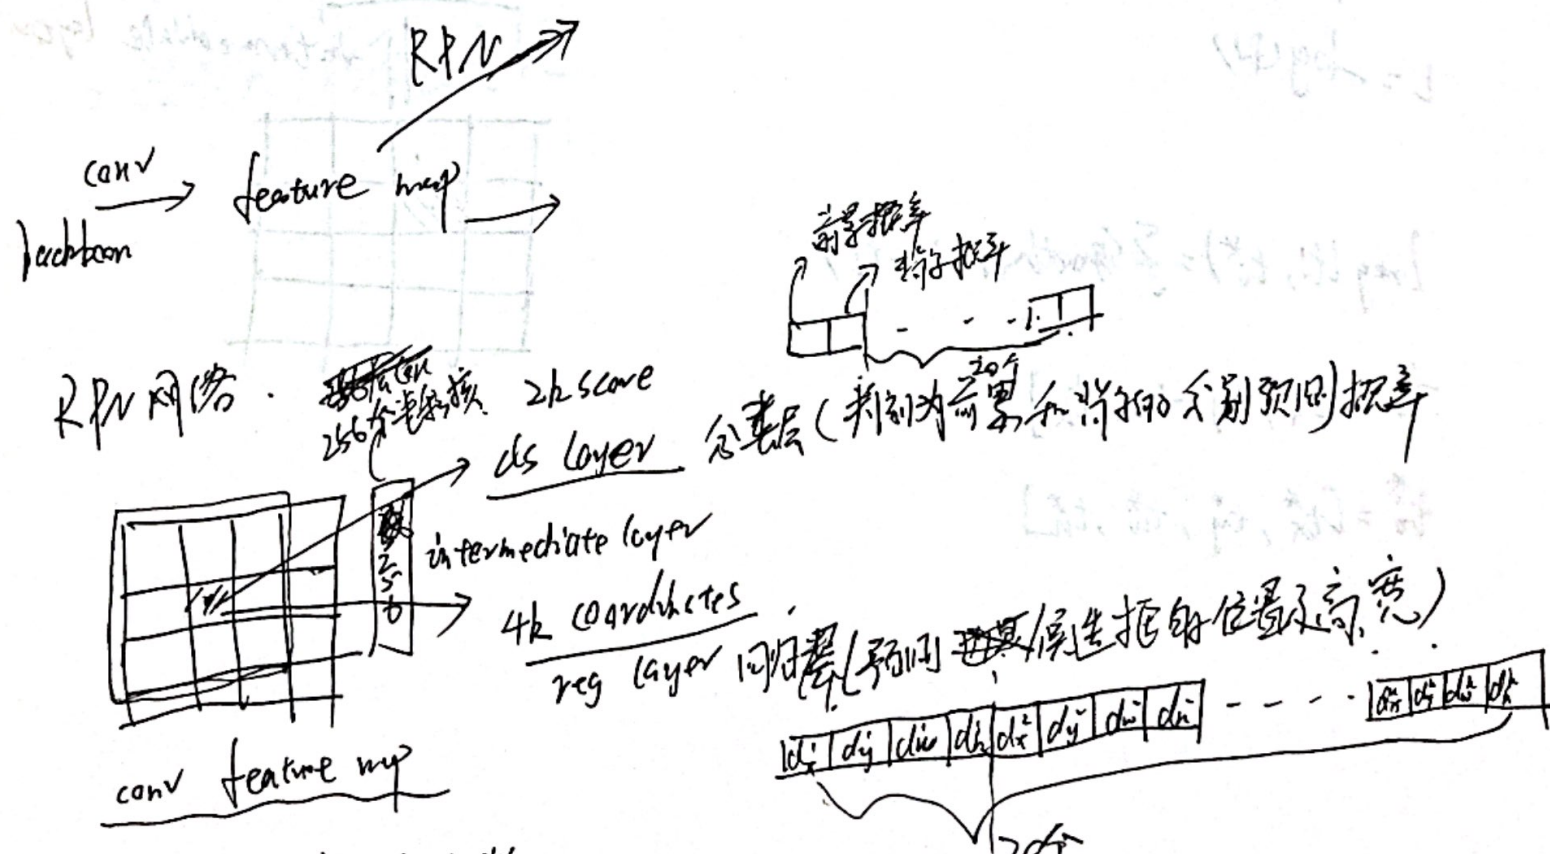 RPN
conv
feature map
backbon
前景概率
背景概率
RPN 网络.
256个卷积核
2k score
20个
cls layer
分类层(判别为前景和背景的分别预测)概率
256
intermediate layer
4k coordinates
reg layer 回归层(预测候选框的位置及高,宽)
dx¹ dy¹ dw¹ dh¹ dx² dy² dw² dh² - - - -
conv feature map
20个